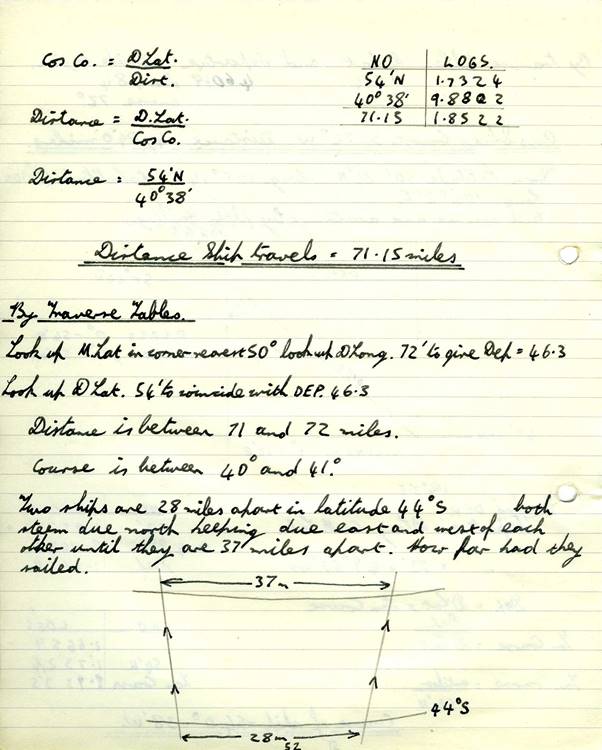 Cos Co. = D Lat.
Dist.
NO LOGS.
54'N 1.7324
40° 38' 9.8802
71.15 1.8522
Distance = D. Lat.
Cos Co.
Distance = 54'N
40° 38'
Distance Ship travels = 71.15 miles
By Traverse Tables.
Look up M. Lat in corner nearest 50° look up D Long. 72' to give Dep = 46.3
Look up D Lat. 54' to coincide with DEP. 46.3
Distance is between 71 and 72 miles.
Course is between 40° and 41°.
Two ships are 28 miles apart in latitude 44°S both
steem due north keeping due east and west of each
other until they are 37 miles apart. How far had they
sailed.
37m
44°S
28m
52